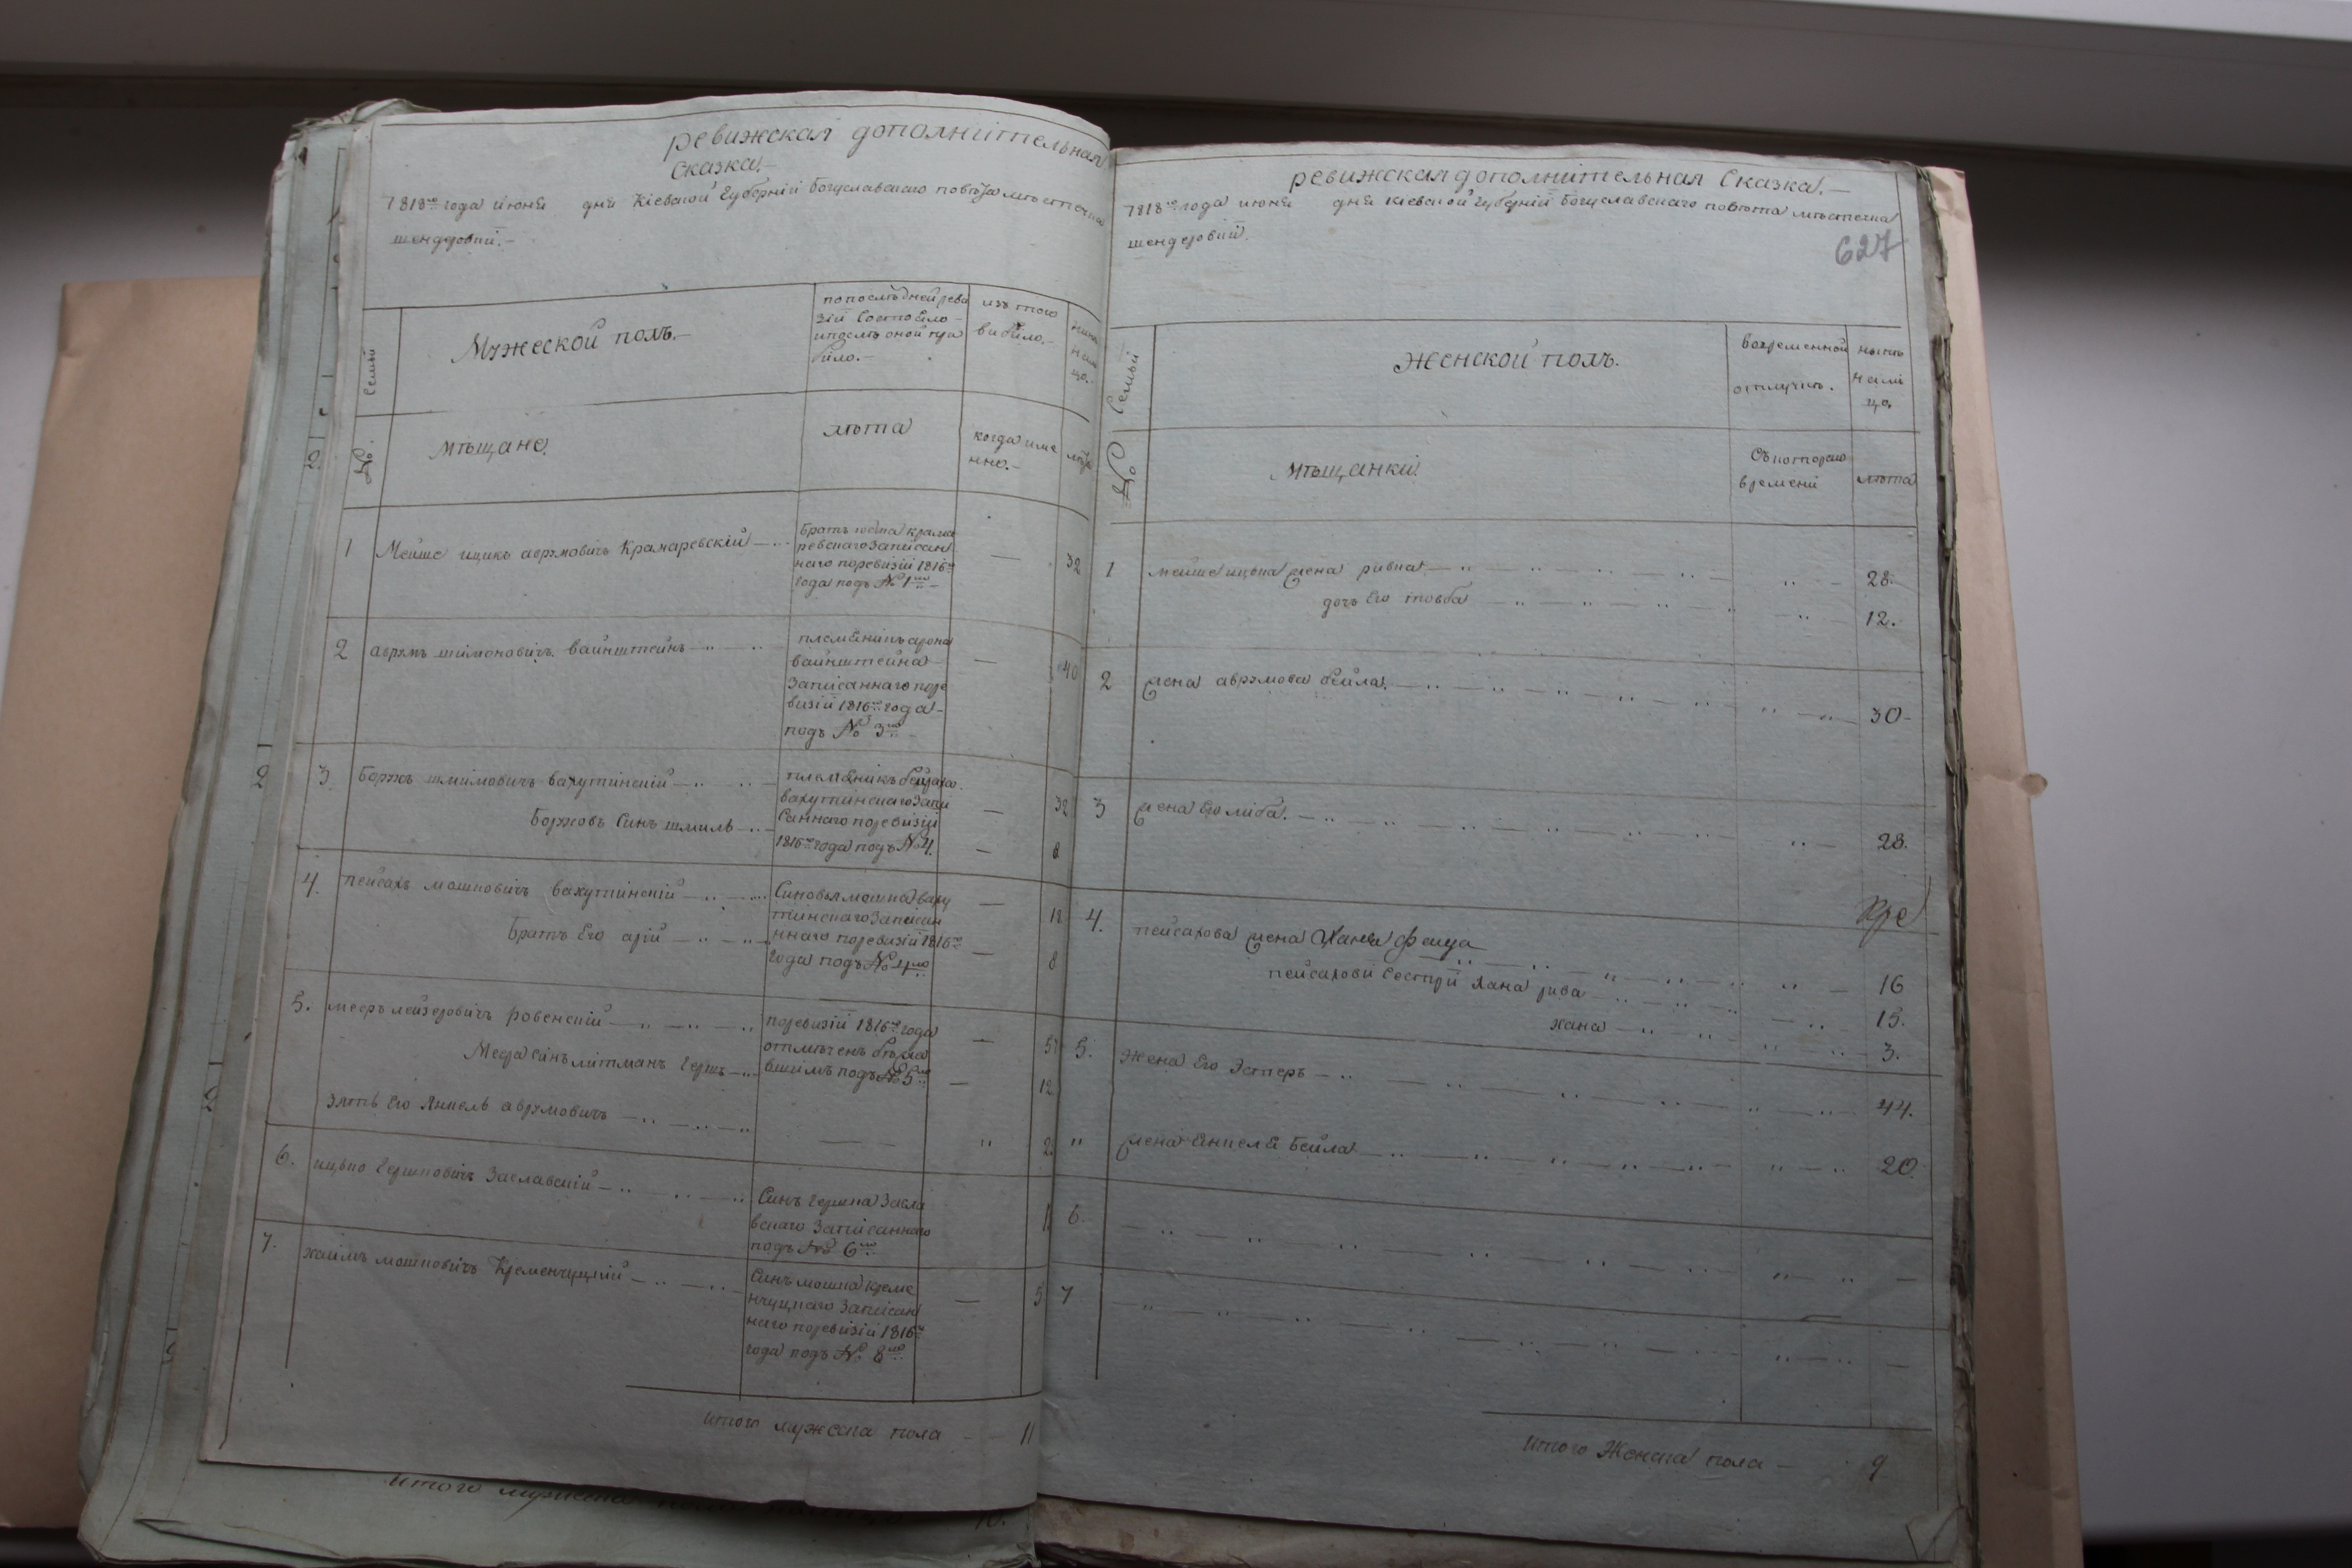 ревижская дополнительная
Сказка.—
1818го года июня дня Кіевской Губерніи Богуславского повѣта мѣстечка
шендеровки.—
Семьи
Мужеской полъ.—
по последней реви
зіи Состояло—
и после оной при
било.—
изъ того
вибило.—
ныне
нали
цо.
№.
мѣщане.
лѣта
когда име
нно.—
лѣта
1 Мейше ицико аврумовичъ Крамаревскій —
Братъ крама
ревскаго записан
наго поревизіи 1816го
года подъ № 1мъ —
— 32
2 аврумъ шимоновичъ вайнштейнъ —
племеникъ арона
вайнштейна
записаннаго поре
визіи 1816го года —
подъ № 3мъ —
— 40
3. Борухъ шмилiовичъ вахутинскій —
племеникъ
вахутинскаго запи
Саннаго поревизіи
1816го года подъ № 4.
— 32
Боруховъ Синъ шмиль — — 8
4. пейсахъ мошковичъ вахутинскій —
Братъ Его арій —
Синовья мошка ваху
тинскаго записан
ннаго поревизіи 1816го
года подъ № 4мъ
— 18
— 8
5. мееръ лейзеровичъ ровенскій —
Меера синъ литманъ Гершъ —
поревизіи 1816го года
отмѣченъ
вшимъ подъ № 5мъ
— 51
— 12
зять Его Янкель аврумовичъ — — —
6. ицько Гершковичъ Заславскій —
Синъ гершка Засла
вскаго Записаннаго
подъ № 6мъ
7. хаимъ мошковичъ Кременчуцкій —
Синъ мошка креме
нчуцкаго Записан
наго поревизіи 1816го
года подъ № 8мъ
— 5
итого мужеска пола — — 11
ревижская дополнительная Сказка.—
1818го года июня дня кіевской губерніи Богуславскаго повѣта мѣстечка
шендеровки.
627
Семьи
Женской полъ.
вовременной
отлучке.
ныне
нали
цо.
№
мѣщанки.
Съкотораго
времени
лѣта
1 мейше ицька жена ривка — 28.
дочь Его товба — 12.
2 жена аврумова бейла. — 30 —
3 жена Его либа. — 28.
4. пейсахова жена Хана фейга — 16
пейсахови Сестри хана рива — 15.
хана — 3.
5. Жена Его Эстеръ — 44.
" жена янкеля Бейла — 20.
6. — — —
7 — — —
итого Женска пола — 9